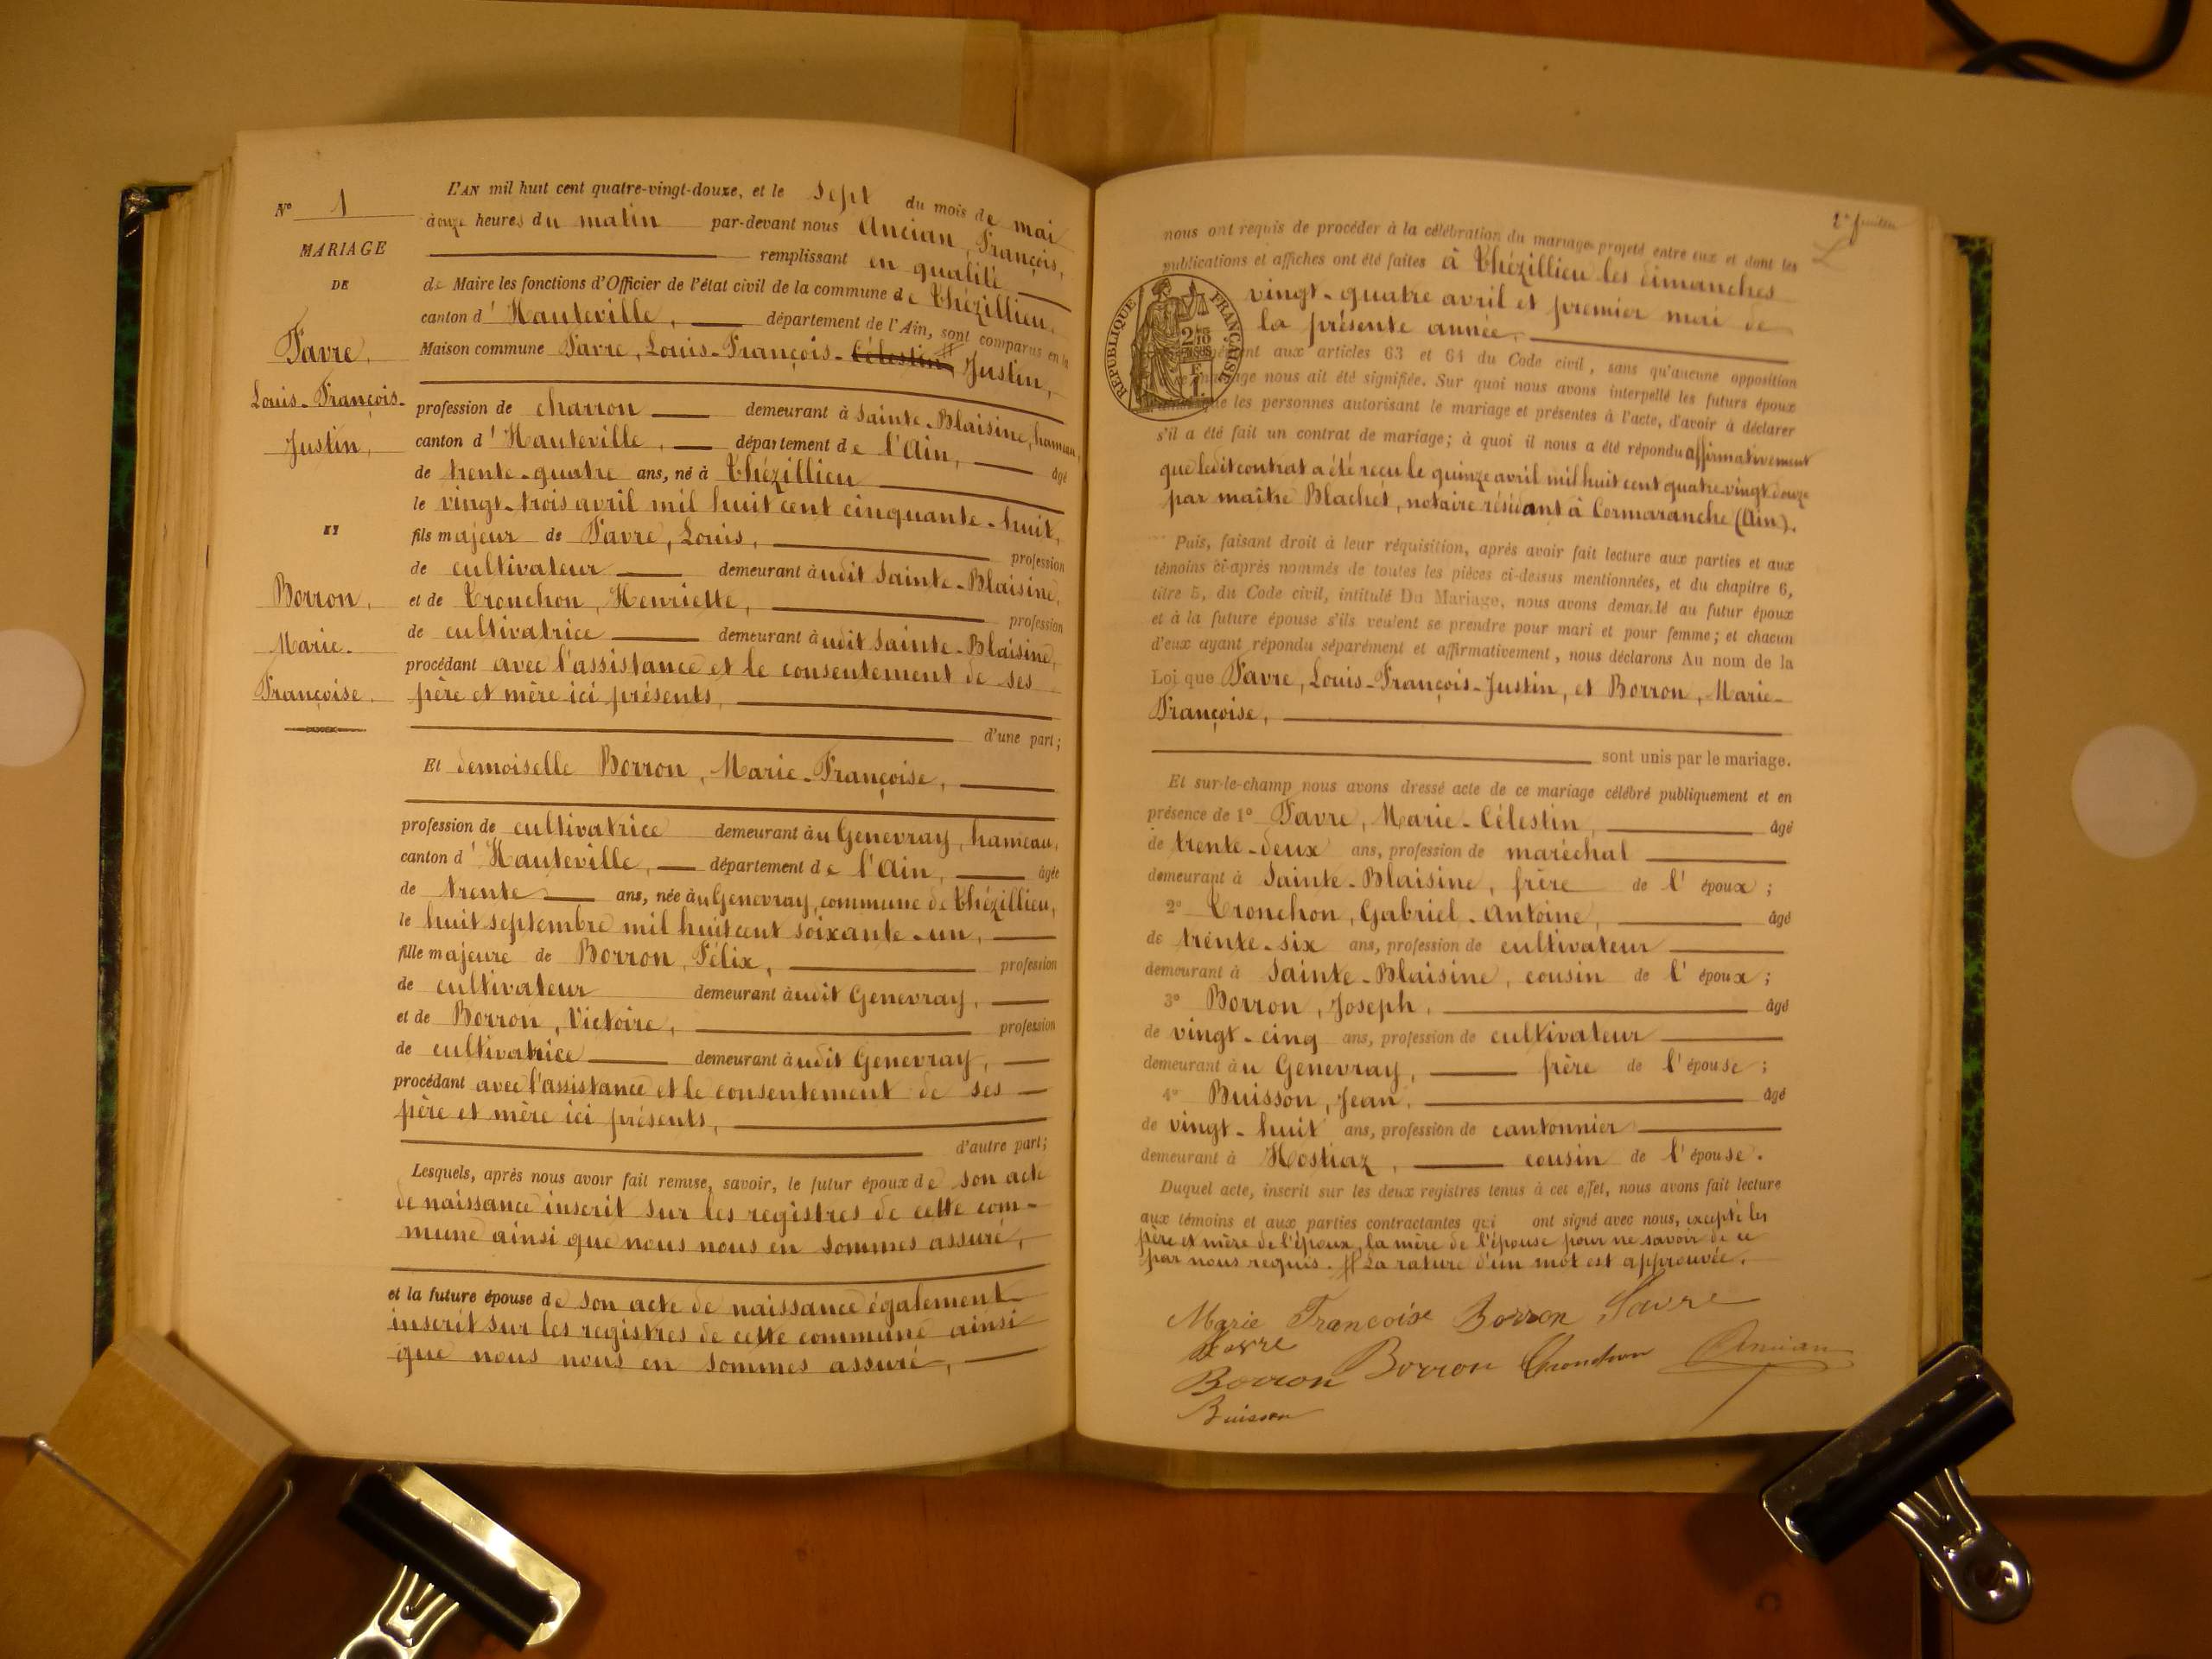 N° 1
MARIAGE
DE
Favre,
Louis-François-
Justin,
ET
Borron,
Marie-
Françoise.
L'AN mil huit cent quatre-vingt-douze, et le sept du mois de mai
à onze heures du matin par-devant nous Ancian, François,
remplissant en qualité
de Maire les fonctions d'Officier de l'état civil de la commune de Thézillieu,
canton d'Hauteville, département de l'Ain, sont comparus en la
Maison commune Favre, Louis-François-Célestin, # Justin,
profession de charron demeurant à Sainte-Blaisine, hameau,
canton d'Hauteville, département de l'Ain, âgé
de trente-quatre ans, né à Thézillieu
le vingt-trois avril mil huit cent cinquante-huit,
fils majeur de Favre, Louis, profession
de cultivateur demeurant audit Sainte-Blaisine,
et de Tronchon, Henriette, profession
de cultivatrice demeurant audit Sainte-Blaisine,
procédant avec l'assistance et le consentement de ses
père et mère ici présents,
d'une part;
Et demoiselle Borron, Marie-Françoise,
profession de cultivatrice demeurant au Genevray, hameau,
canton d'Hauteville, département de l'Ain, âgée
de trente ans, née au Genevray, commune de Thézillieu,
le huit septembre mil huit cent soixante-un,
fille majeure de Borron, Félix, profession
de cultivateur demeurant audit Genevray,
et de Borron, Victoire, profession
de cultivatrice demeurant audit Genevray,
procédant avec l'assistance et le consentement de ses
père et mère ici présents,
d'autre part;
Lesquels, après nous avoir fait remise, savoir, le futur époux de son acte
de naissance inscrit sur les registres de cette com-
mune ainsi que nous nous en sommes assuré,
et la future épouse de son acte de naissance également
inscrit sur les registres de cette commune ainsi
que nous nous en sommes assuré,
2e feuillet
nous ont requis de procéder à la célébration du mariage projeté entre eux et dont les
publications et affiches ont été faites à Thézillieu les dimanches
vingt-quatre avril et premier mai de
la présente année,
RÉPUBLIQUE FRANÇAISE
aux articles 63 et 64 du Code civil, sans qu'aucune opposition
nous ait été signifiée. Sur quoi nous avons interpellé les futurs époux
que les personnes autorisant le mariage et présentes à l'acte, d'avoir à déclarer
s'il a été fait un contrat de mariage; à quoi il nous a été répondu affirmativement
que ledit contrat a été reçu le quinze avril mil huit cent quatre-vingt-douze
par maître Blachet, notaire résidant à Cormaranche (Ain).
Puis, faisant droit à leur réquisition, après avoir fait lecture aux parties et aux
témoins ci-après nommés de toutes les pièces ci-dessus mentionnées, et du chapitre 6,
titre 5, du Code civil, intitulé Du Mariage, nous avons demandé au futur époux
et à la future épouse s'ils veulent se prendre pour mari et pour femme; et chacun
d'eux ayant répondu séparément et affirmativement, nous déclarons Au nom de la
Loi que Favre, Louis-François-Justin, et Borron, Marie-
Françoise,
sont unis par le mariage.
Et sur-le-champ nous avons dressé acte de ce mariage célébré publiquement et en
présence de 1° Favre, Marie-Célestin, âgé
de trente-deux ans, profession de maréchal
demeurant à Sainte-Blaisine, frère de l'époux;
2° Tronchon, Gabriel-Antoine, âgé
de trente-six ans, profession de cultivateur
demeurant à Sainte-Blaisine, cousin de l'époux;
3° Borron, Joseph, âgé
de vingt-cinq ans, profession de cultivateur
demeurant au Genevray, frère de l'épouse;
4° Buisson, Jean, âgé
de vingt-huit ans, profession de cantonnier
demeurant à Hostiaz, cousin de l'épouse.
Duquel acte, inscrit sur les deux registres tenus à cet effet, nous avons fait lecture
aux témoins et aux parties contractantes qui ont signé avec nous, excepté les
père et mère de l'époux, la mère de l'épouse pour ne savoir de ce
par nous requis. # La rature d'un mot est approuvée.
Marie Françoise Borron Favre
Favre
Borron Borron Tronchon Ancian
Buisson